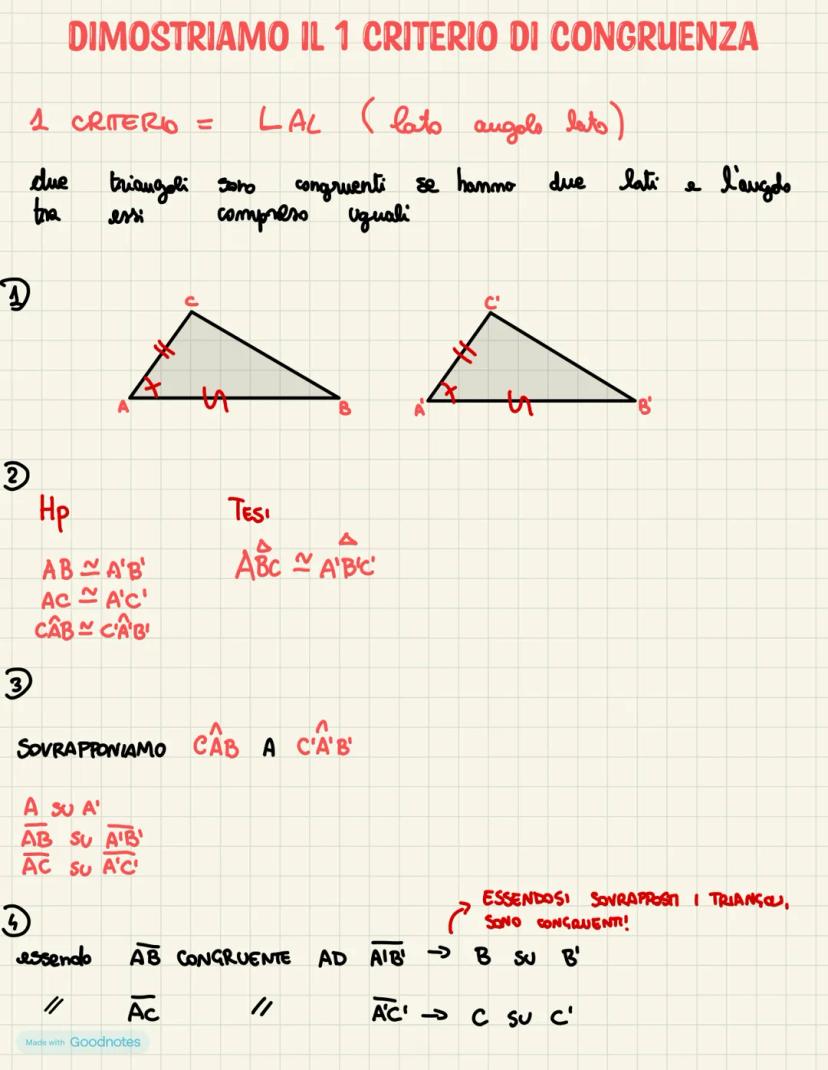 DIMOSTRIAMO IL 1 CRITERIO DI CONGRUENZA
1 CRITERIO = LAL (lato angolo lato)
due triangoli sono congruenti se hanno due lati e l'angolo
tra essi compreso uguali
1
C C'
A B A' B'
2
Hp Tesi
AB ≅ A'B' ABC ≅ A'B'C'
AC ≅ A'C'
CÂB ≅ C'Â'B'
3
SOVRAPPONIAMO CÂB A C'Â'B'
A SU A'
AB SU A'B'
AC SU A'C'
4
ESSENDOSI SOVRAPPOSTI I TRIANGOLI,
SONO CONGRUENTI!
essendo AB CONGRUENTE AD A'B' → B SU B'
// AC // A'C' → C SU C'
Made with Goodnotes